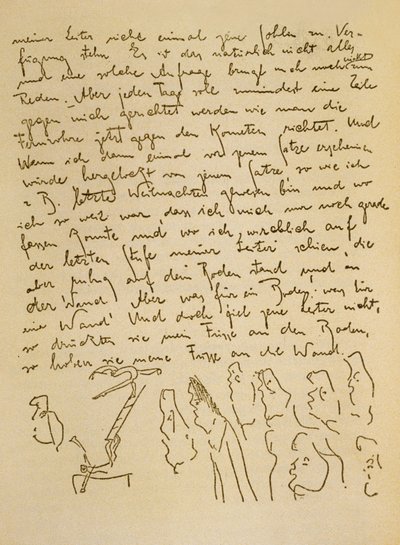 meiner Leiter nicht einmal jene Sohlen zur Ver-
fügung stehn. Es ist das natürlich nicht alles
und eine solche Anfrage bringt mich noch nicht zum
Reden. Aber jeden Tag soll zumindest eine Zeile
gegen mich gerichtet werden wie man die
Fernrohre jetzt gegen den Kometen richtet. Und
wenn ich dann einmal vor jenem Satze erscheinen
würde hergelockt von jenem Satze, so wie ich
z. B. letzte Weihnachten gewesen bin und wo
ich so weit war, dass ich mich nur noch gerade
fassen konnte und wo ich wirklich auf
der letzten Stufe meiner Leiter schien, die
aber ruhig auf dem Boden stand und an
der Wand. Aber was für ein Boden! was für
eine Wand! Und doch fiel jene Leiter nicht,
so drückten sie meine Füsse an den Boden,
so hoben sie meine Füsse an die Wand.